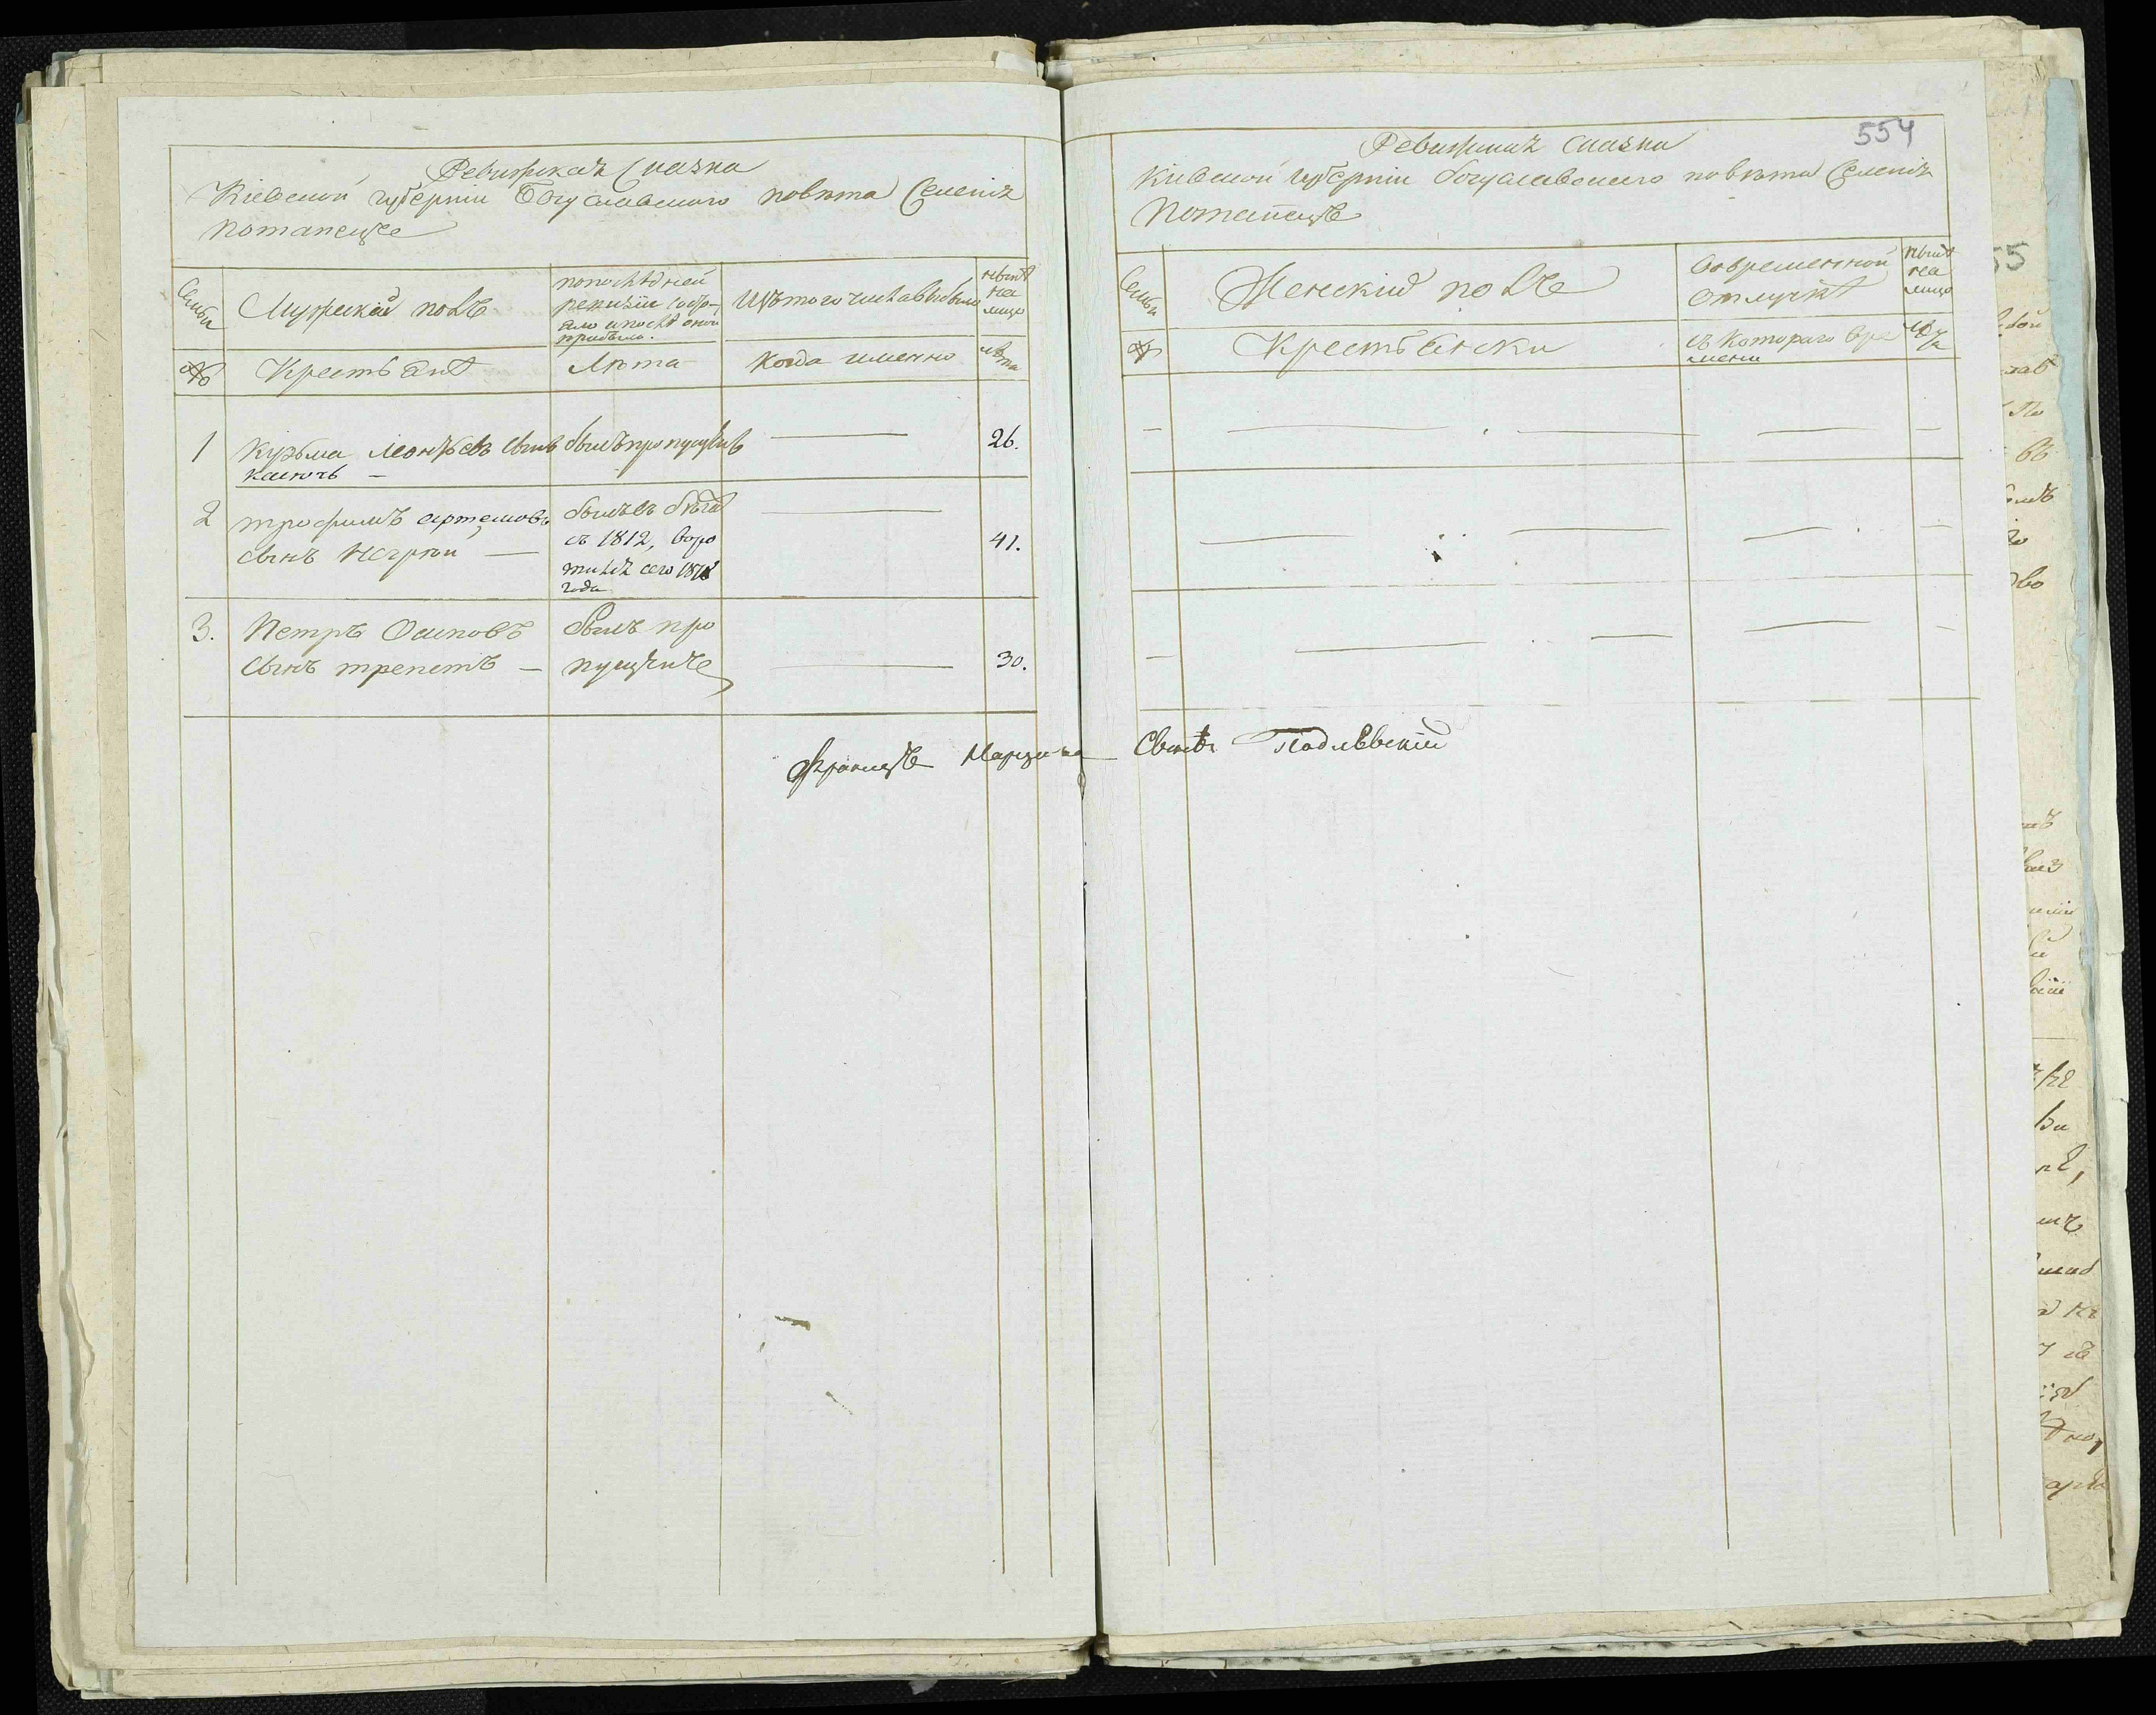 Ревижская Сказка
Кіевской губерніи Богуславского повѣта Селенія
Потапецъ
Семьи
Мужескій полъ
попослѣдней
ревизіи состо-
яло и послѣ оной
прибыло.
Изъ того числа выбыло
нынѣ
на
лицо
№
Крестьянѣ
Лѣта
Когда именно
лѣта
1
Кузьма Леонтьевъ сынъ
былъ пропущенъ
26.
2
трофимъ артемовъ
сынъ
былъ въ бѣгах
съ 1812, воро
тился сего 1818
года
41.
3.
Петръ Осиповъ
сынъ трепетъ —
былъ про
пущенъ
30.
554
Ревижская Сказка
Кіевской губерніи богуславского повѣта Селенія
Потапецъ
Семьи
Женскій полъ
Вовременной
отлучкѣ
Нынѣ
на
лицо
№
Крестьянски
съ Котораго вре
мени
Францъ Сынъ